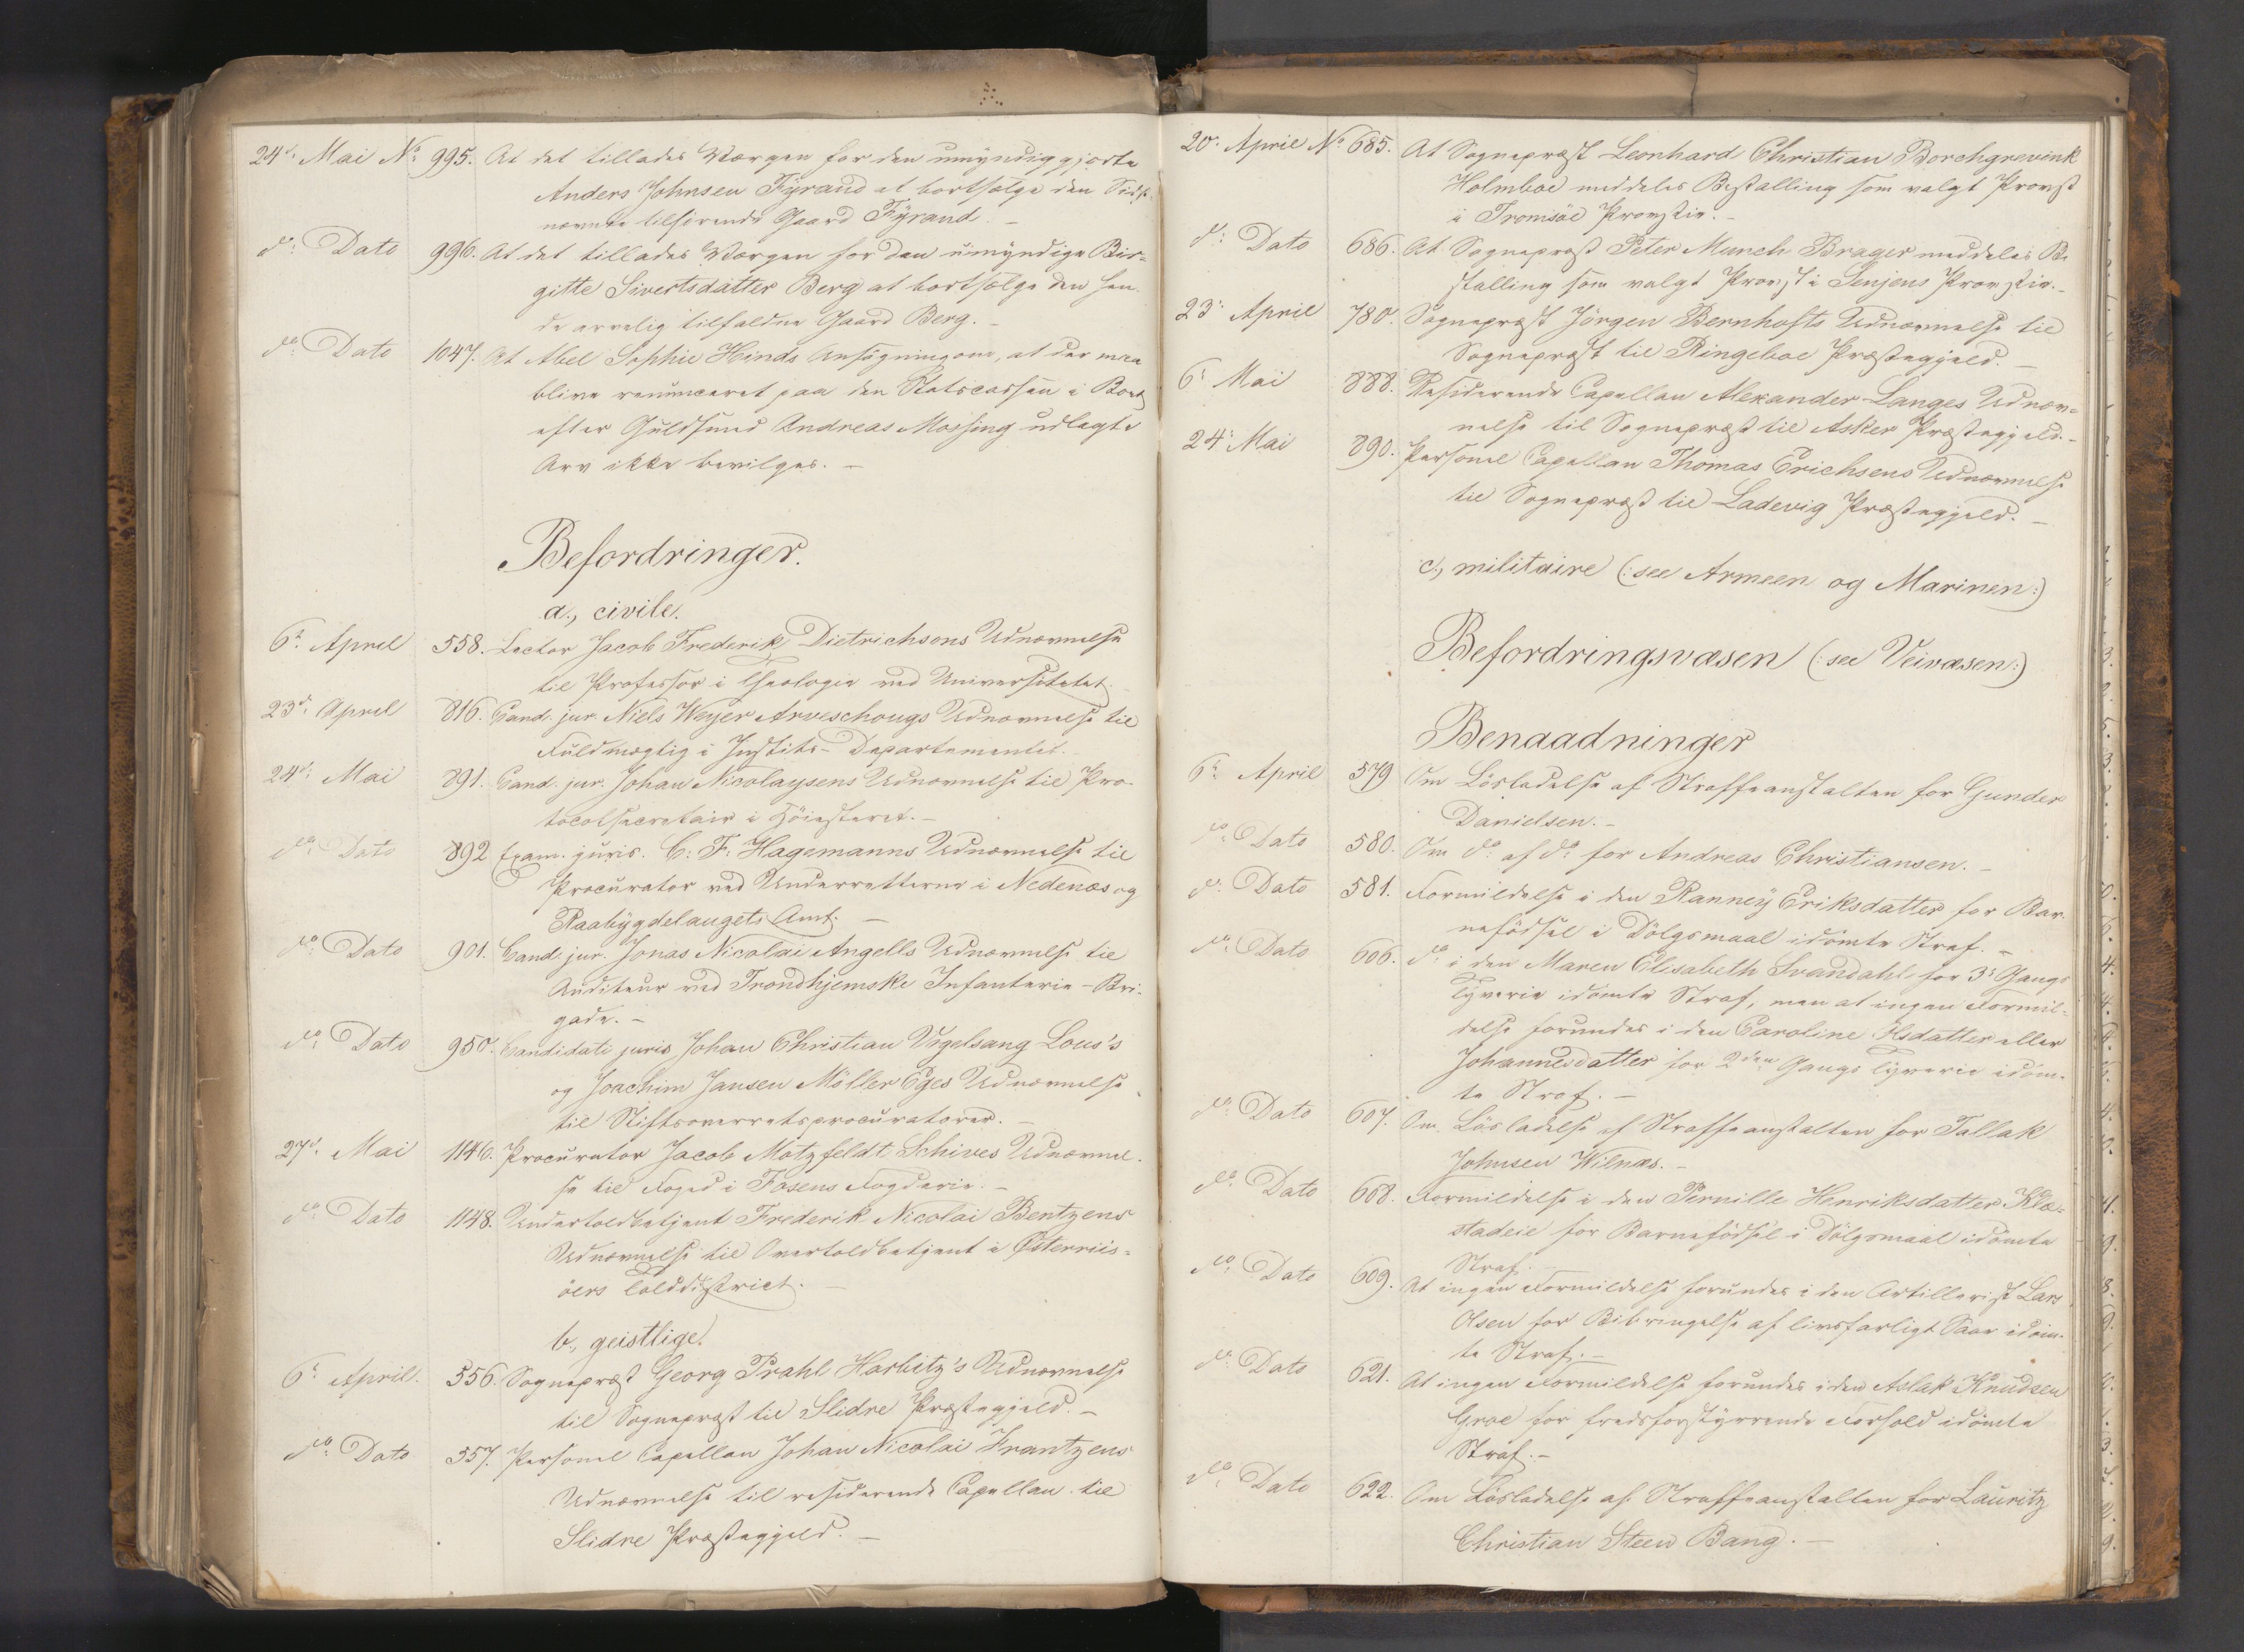 24de Mai No 995. At det tillades Værgen for den umyndiggjorte
Anders Johnsen Fÿrand at bortsælge den Sidst-
nævnte tilhørende Gaard Fÿrand. –
do Dato 996. At det tillades Værgen for den umyndige Bir-
gitte Sivertsdatter Berg at bortsælge den hen-
de arvelig tilfaldne Gaard Berg. –
do Dato 1047. At Abel Sophie Hinds Ansøgning om, at der maa
blive renunceret paa den Statscassen i Boet
efter Guldsmed Andreas Mossing udlagte
Arv ikke bevilges. –
Befordringer.
a., civile.
6te April 558. Lector Jacob Frederik Dietrichsons Udnævnelse
til Professor i Theologie ved Universitetet.
23de April 816. Cand. jur. Niels Weyer Arveschougs Udnævnelse til
Fuldmægtig i Justits-Departementet.
24de Mai 891. Cand. jur. Johan Nicolaysens Udnævnelse til Pro-
tocolsecretair i Höiesteret. –
do Dato 892 Exam. juris. C: F: Hagemanns Udnævnelse til
Procurator ved Underretterne i Nedenæs og
Raabÿgdelaugets Amt. –
do Dato 901. Cand. jur. Jonas Nicolai Angells Udnævnelse til
Auditeur ved Trondhjemske Infanterie-Bri-
gade. –
do Dato 950. Candidati juris Johan Christian Vogelsang Lous's
og Joachim Jansen Möller Eges Udnævnelse
til Stiftsoverretsprocuratorer. –
27de Mai 1146. Procurator Jacob Motzfeldt Schives Udnævnel-
se til Foged i Fosens Fogderie. –
do Dato 1148. Undertoldbetjent Frederik Nicolai Bentzens
Udnævnelse til Overtoldbetjent i Østerriis-
öers Tolddistrict. –
b., geistlige.
6te April. 556. Sognepræst Georg Prahl Harbitz's Udnævnelse
til Sognepræst til Slidre Præstegjeld. –
do Dato 557. Personel Capellan Johan Nicolai Frantzens
Udnævnelse til residerende Capellan til
Slidre Præstegjeld. –
20de April No 685. At Sognepræst Leonhard Christian Borchgrevink
Holmboe meddeles Bestalling som valgt Provst
i Tromsöe Provstie. –
do Dato 686. At Sognepræst Peter Munch Brager meddeles Be-
stalling som valgt Provst i Senjens Provstie. –
23de April 780. Sognepræst Jörgen Bernhofts Udnævnelse til
Sognepræst til Ringeboe Præstegjeld. –
6te Mai 888. Residerende Capellan Alexander Langes Udnæv-
nelse til Sognepræst til Asker Præstegjeld. –
24de Mai 890. Personel Capellan Thomas Erichsens Udnævnelse
til Sognepræst til Ladevig Præstegjeld. –
c., militaire (: see Armeen og Marinen :)
Befordringsvæsen (: see Veivæsen :)
Benaadninger
6te April 579 Om Lösladelse af Straffeanstalten for Gunder
Danielsen. –
do Dato 580. Om do af do for Andreas Christiansen. –
do Dato 581. Formildelse i den Ranneÿ Eriksdatter for Bar-
nefödsel i Dölgsmaal idömte Straf. –
do Dato 606. do i den Maren Elisabeth Svandahl for 3die Gangs
Tÿverie idömte Straf, men at ingen Formil-
delse forundes i den Caroline Olsdatter eller
Johannesdatter for 2den Gangs Tÿverie idöm-
te Straf. –
do Dato 607. Om Lösladelse af Straffeanstalten for Tallak
Johnsen Wilnæs. –
do Dato 608. Formildelse i den Pernille Henriksdatter Klæ-
stadeie for Barnefödsel i Dölgsmaal idömte
Straf. –
do Dato 609. At ingen Formildelse forundes i den Artillerist Lars
Olsen for Bibringelse af livsfarligt Saar idöm-
te Straf. –
do Dato 621. At ingen Formildelse forundes i den Aslak Knudsen
Groe for fredsforstÿrrende Forhold idömte
Straf. –
do Dato 622. Om Lösladelse af Straffeanstalten for Lauritz
Christian Steen Bang. –